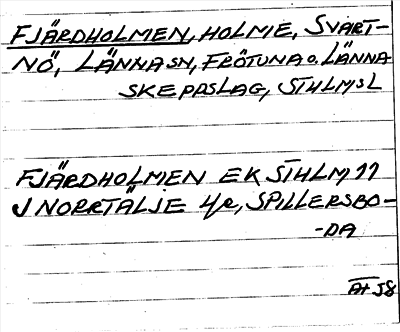 FJÄRDHOLMEN, HOLME, SVART-
NÖ, LÄNNA SN, FRÖTUNA O. LÄNNA
SKEPPSLAG, STHLMSL
FJÄRDHOLMEN EK STHLM 11
J NORRTÄLJE 4e, SPILLERSBO-
-DA